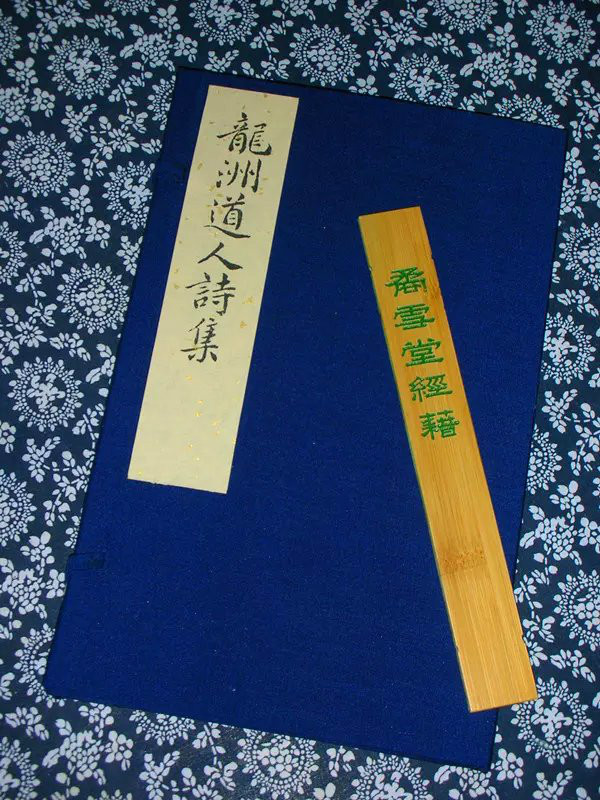 龍洲道人詩集
矞雪堂經藉